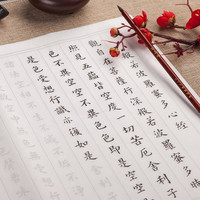 般若波羅蜜多心經
觀自在菩薩行深般若波羅蜜多
照見五蘊皆空度一切苦厄舍利子
色不異空空不異色色即是空空
是色受想行識亦復如是